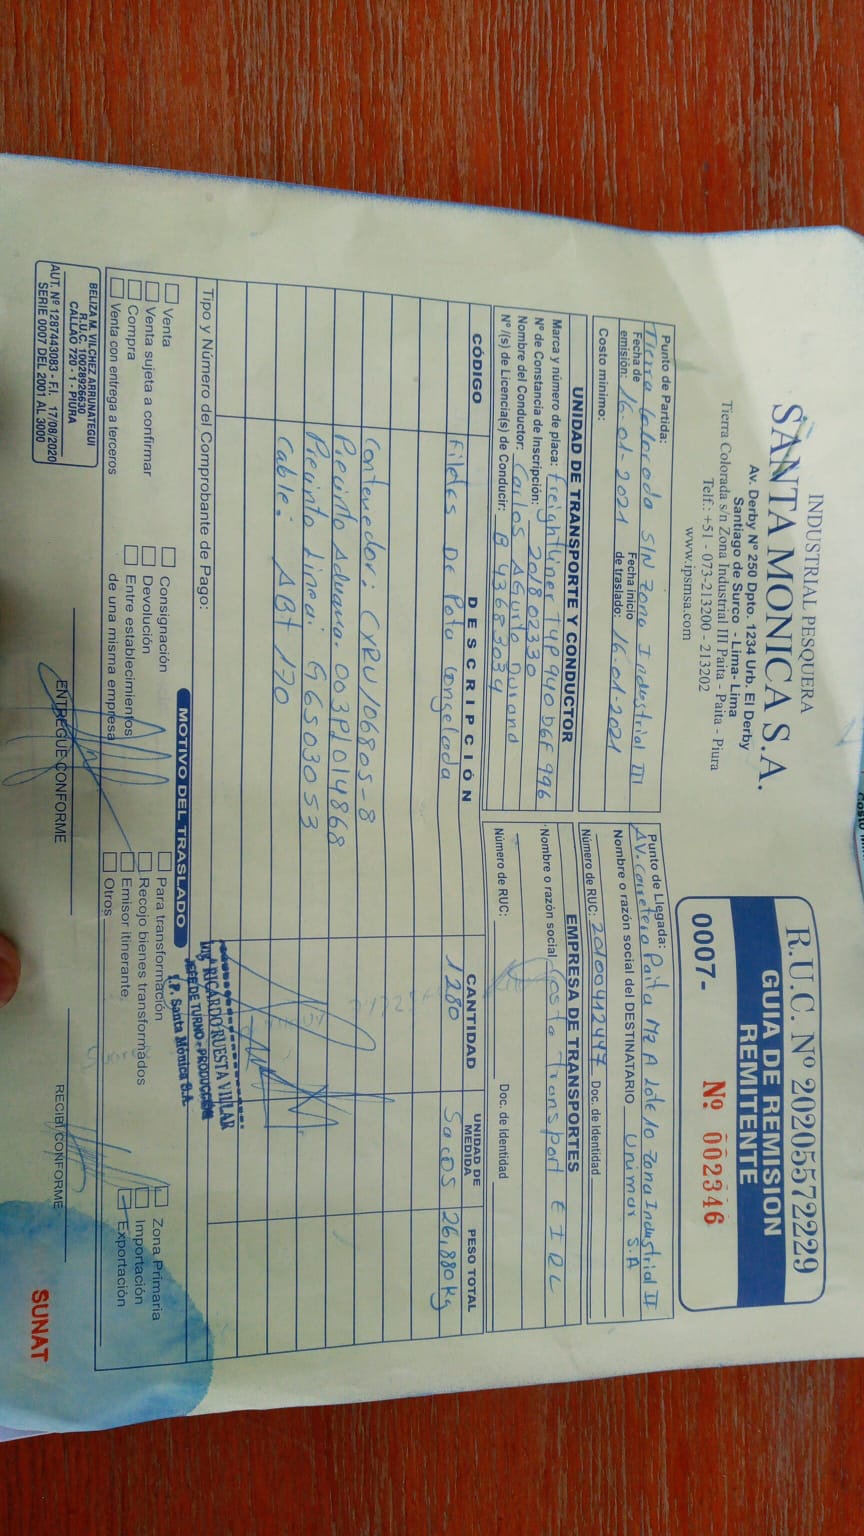 INDUSTRIAL PESQUERA
SANTA MONICA S.A.
Av. Derby Nº 250 Dpto. 1234 Urb. El Derby
Santiago de Surco - Lima- Lima
Tierra Colorada s/n Zona Industrial III Paita - Paita - Piura
Telf.: +51 - 073-213200 - 213202
www.ipsmsa.com
R.U.C. Nº 20205572229
GUIA DE REMISION
REMITENTE
0007- Nº 002346
Punto de Partida:
Tierra Colorada S/N Zona Industrial III
Fecha de emisión: 16-01-2021 Fecha inicio de traslado: 16-01-2021
Costo mínimo:
Punto de Llegada:
AV. Carretera Paita Mz A lote 10 Zona Industrial II
Nombre o razón social del DESTINATARIO Unimar S.A
Número de RUC: 20100412447 Doc. de Identidad
UNIDAD DE TRANSPORTE Y CONDUCTOR
Marca y número de placa: Freightliner T4P 940 D6F 996
Nº de Constancia de Inscripción: 201802330
Nombre del Conductor: Carlos Agurto Durand
Nº /(s) de Licencia(s) de Conducir: B 43683034
EMPRESA DE TRANSPORTES
Nombre o razón social Costa Transport E I R L
Número de RUC: Doc. de Identidad
CÓDIGO DESCRIPCIÓN CANTIDAD UNIDAD DE MEDIDA PESO TOTAL
Filetes De Pota Congelada 1280 Sacos 26,880 Kg
Contenedor: CXRU106805-8
Precinto Aduana: 003P1014868
Precinto Linea: G6503053
Cable: ABT 170
ING. RICARDO RUESTA VILLAR
JEFE DE TURNO - PRODUCCIÓN
I.P. Santa Mónica S.A.
Tipo y Número del Comprobante de Pago:
MOTIVO DEL TRASLADO
Venta
Venta sujeta a confirmar
Compra
Venta con entrega a terceros
Consignación
Devolución
Entre establecimientos de una misma empresa
Para transformación
Recojo bienes transformados
Emisor Itinerante.
Otros
Zona Primaria
Importación
Exportación
BELIZA M. VILCHEZ ARRUNATEGUI
R.U.C. 10028926630
CALLAO 720 - 1 - PIURA
AUT. Nº 1287443083 - F.I. 17/08/2020
SERIE 0007 DEL 2001 AL 3000
ENTREGUE CONFORME
RECIBI CONFORME
SUNAT